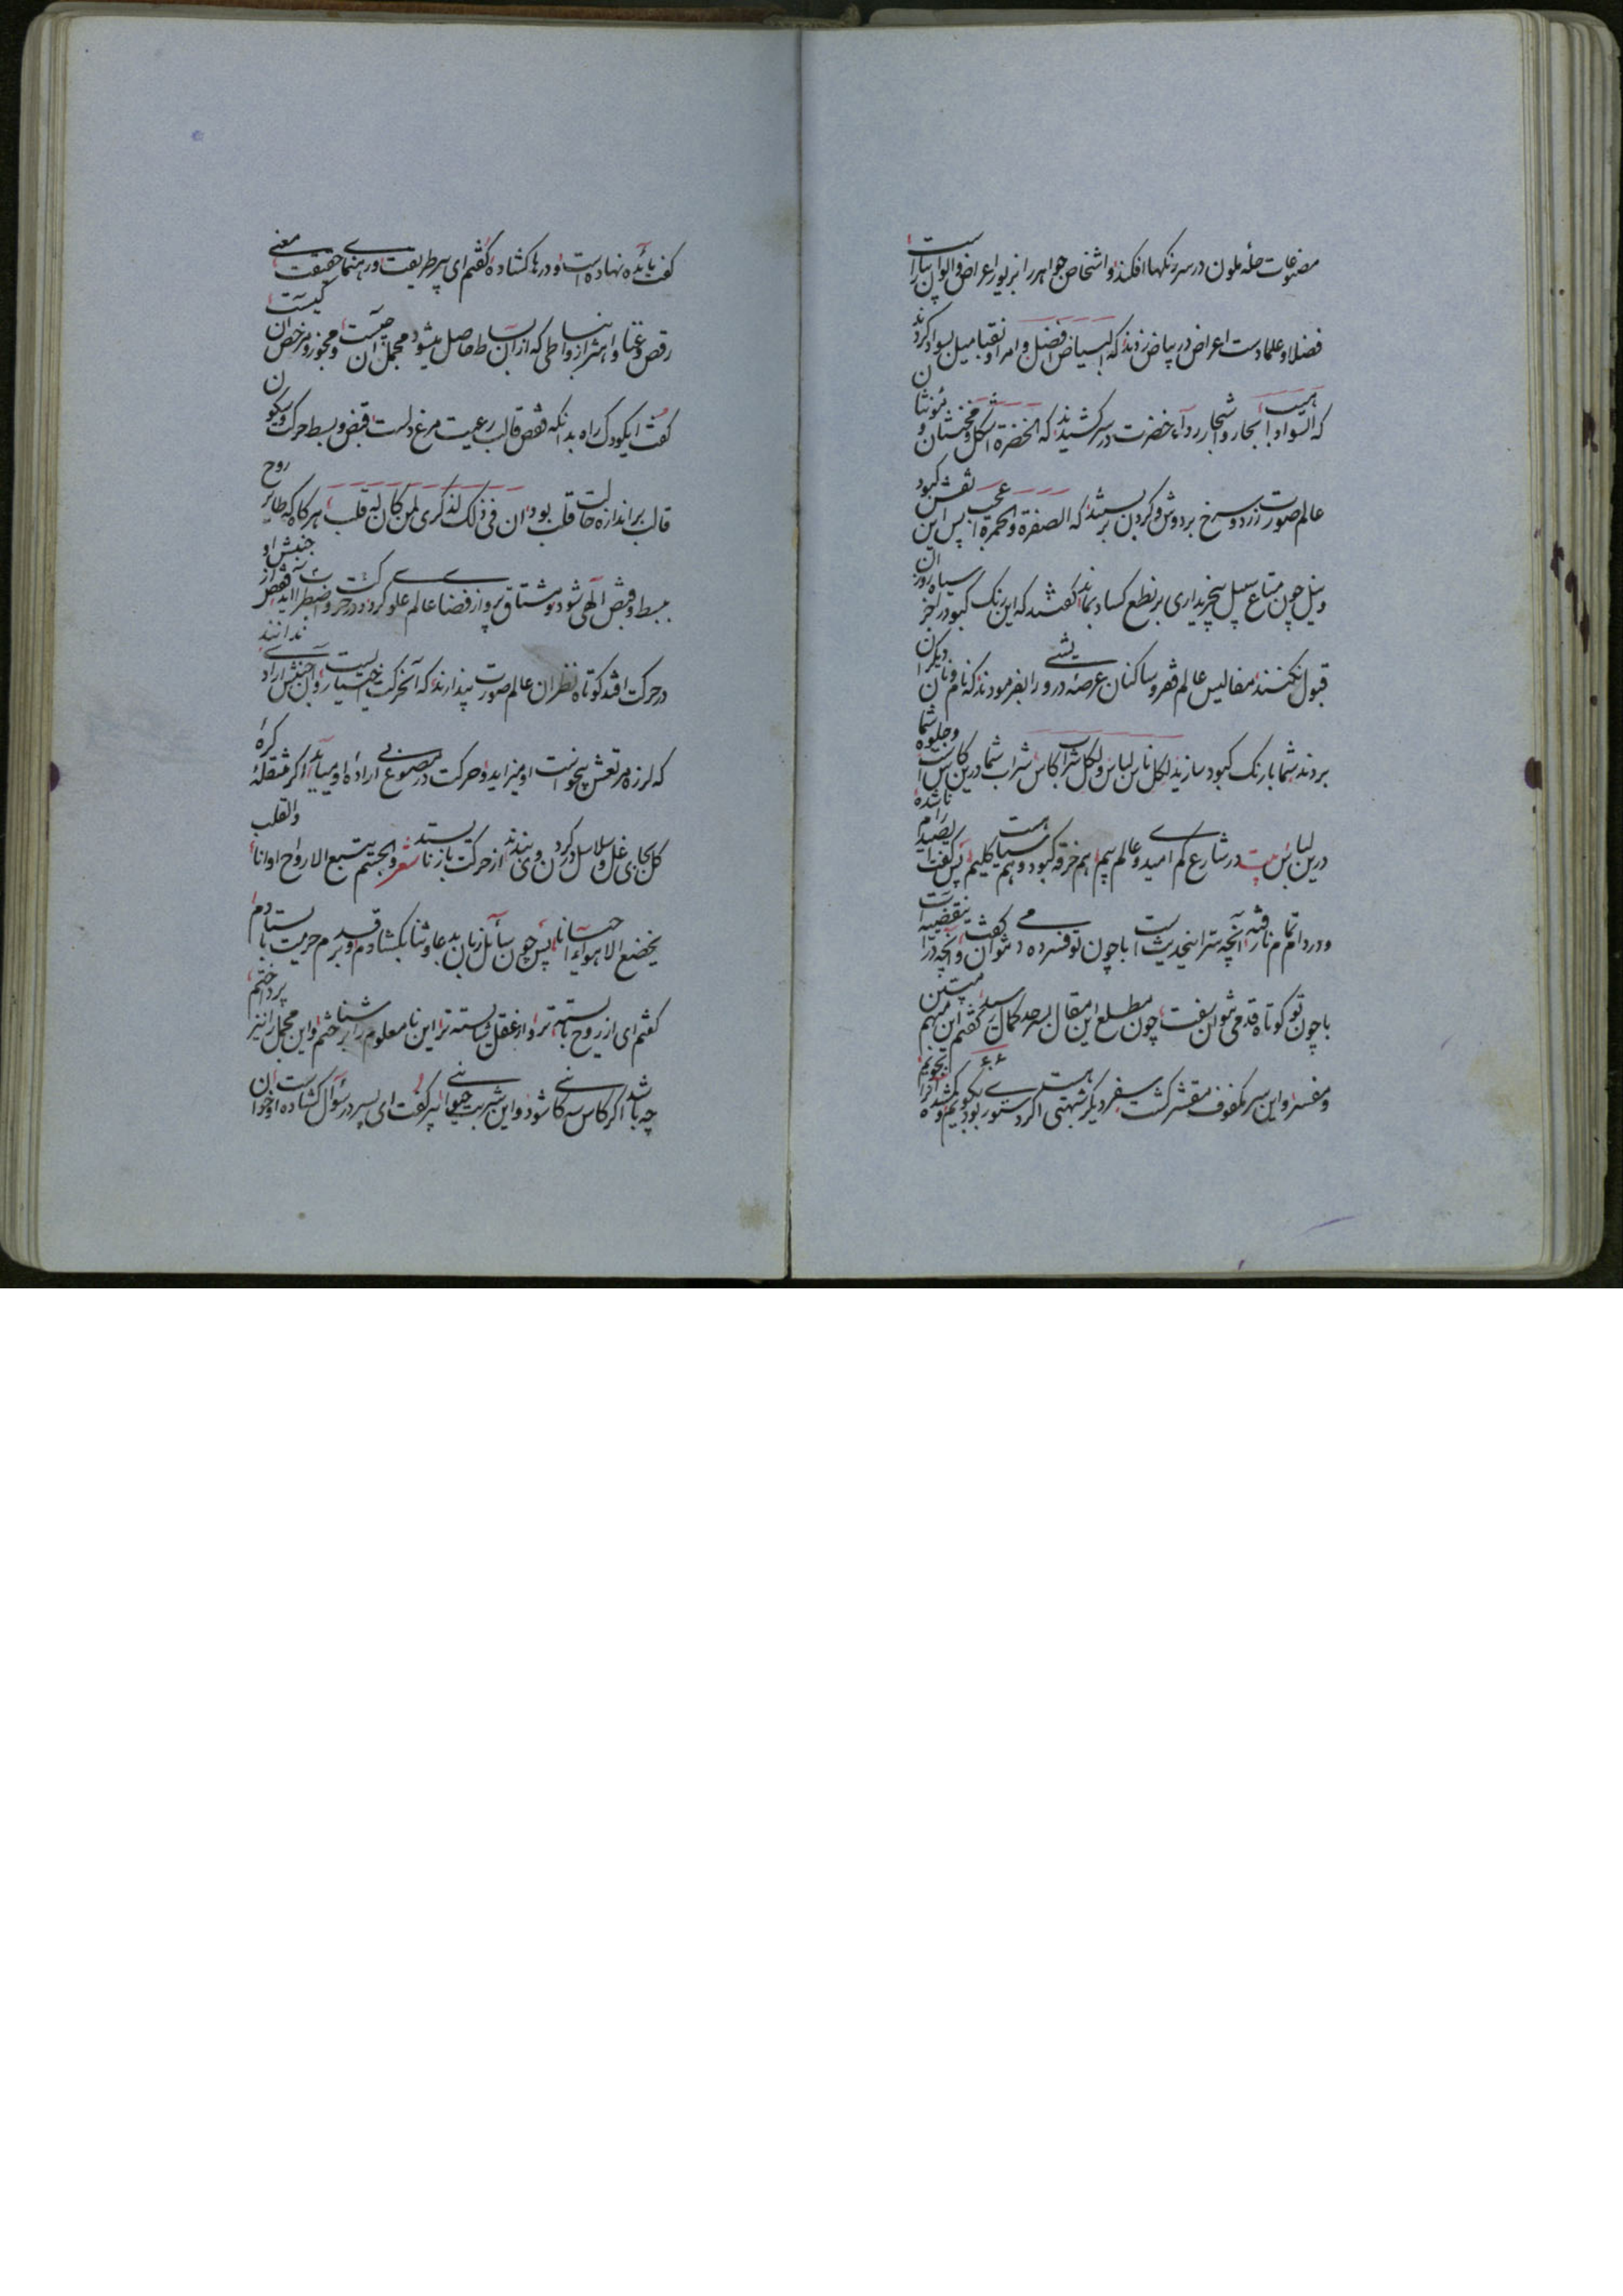 مصنوعات حلهٔ ملون در سر رنگها افکند و اشخاص جواهر را بزیور اعراض و الوان بیاراست
فضلا و علما دست اعراض در بیاض زدند که البیاض افضل و امرا و نقبا میل بسواد کردند
که السواد اهیب اشجار و انجار ردآء خضرت در سر کشیدند که الخضرة اشکل و مخنثان و مؤنثان
عالم صورت زرد و سرخ بر دوش و گردن بستند که الصفرة و الحمرة اعجب پس این نقش کبود
و نیل چون متاع سبیل بخریداری بر نطع کساد بماند گفتند که این رنگ کبود را جز سیاه روزان
قبول نکنند مفالیس عالم فقر و ساکنان عرصهٔ درویشی را بفرمودند که نام و نان دیگران
بردند شما با رنگ کبود سازید لکل ناس لباس و لکل شراب کاس شراب شما درین کاس است و جلوه شما
درین لباس بیت در شارع کم امیدی و عالم بیم هم خرقه کبود و هم سیاهست گلیم پس گفت ای صید نا شده رام
و درد آشام تمام نا رفته آنچه سر این حدیثست با چون تو فسرده دم نمی توان گفت و آنچه در این قضیه است
با چون تو کوتاه قدمی نتوان سفت چون مطلع این مقال بسرحد کمال رسید گفتم این مبهم مبین
و مفسر و این سر مکفوف مقشر گشت سفر دیگر شبهتی هست اگر دستوری بود بگویم و گمشده را بجویم
گفت مائده نهاده است و درها گشاده گفتم ای پیر طریقت و رهنمای حقیقت معنی
رقص و غنا و اهتزاز و انبساطی که از آن بساط حاصل میشود مجمل آن چیست و مجوز و مرخص آن کیست
گفت ای کودک راه بدانکه قفص قالب رعیت مرغ دلست قبض و بسط حرکت و سکون
قالب بر اندازه حالت قلب بود ان فی ذلک لذکری لمن کان له قلب هر گاه که طایر روح
ببسط و قبض آلهی شود و مشتاق پرواز فضای عالم علوی گردد در حرکت و اضطراب آید قفص از جنبش او
در حرکت افتد کوتاه نظران عالم صورت پندارند که آنحرکت اختیاریست و آن جنبش ارادی ندانند
که لرزه مرتعش بیخواست او میزاید و حرکت مصنوعی در بی اراده او میآید اگر مثقله کره
کل بجای غل و سلاسل در گردن وی بندند از حرکت باز نایستد شعر و الجسم یتبع الارواح اوانا و القلب
یخضع الاهواء احسانا پس چون سآئل زبان بدعا و ثنا بگشادم و بر قدم حرمت بایستادم
گفتم ای از روح بایسته تر و از عقل شایسته تر این نا معلوم را بشناختم و این مجمل را نیز پرداختم
چه باشد اگر کاس سه گانی شود و این شربت حیوانی پیر گفت ای پسر در سؤال گشاده است و خوان